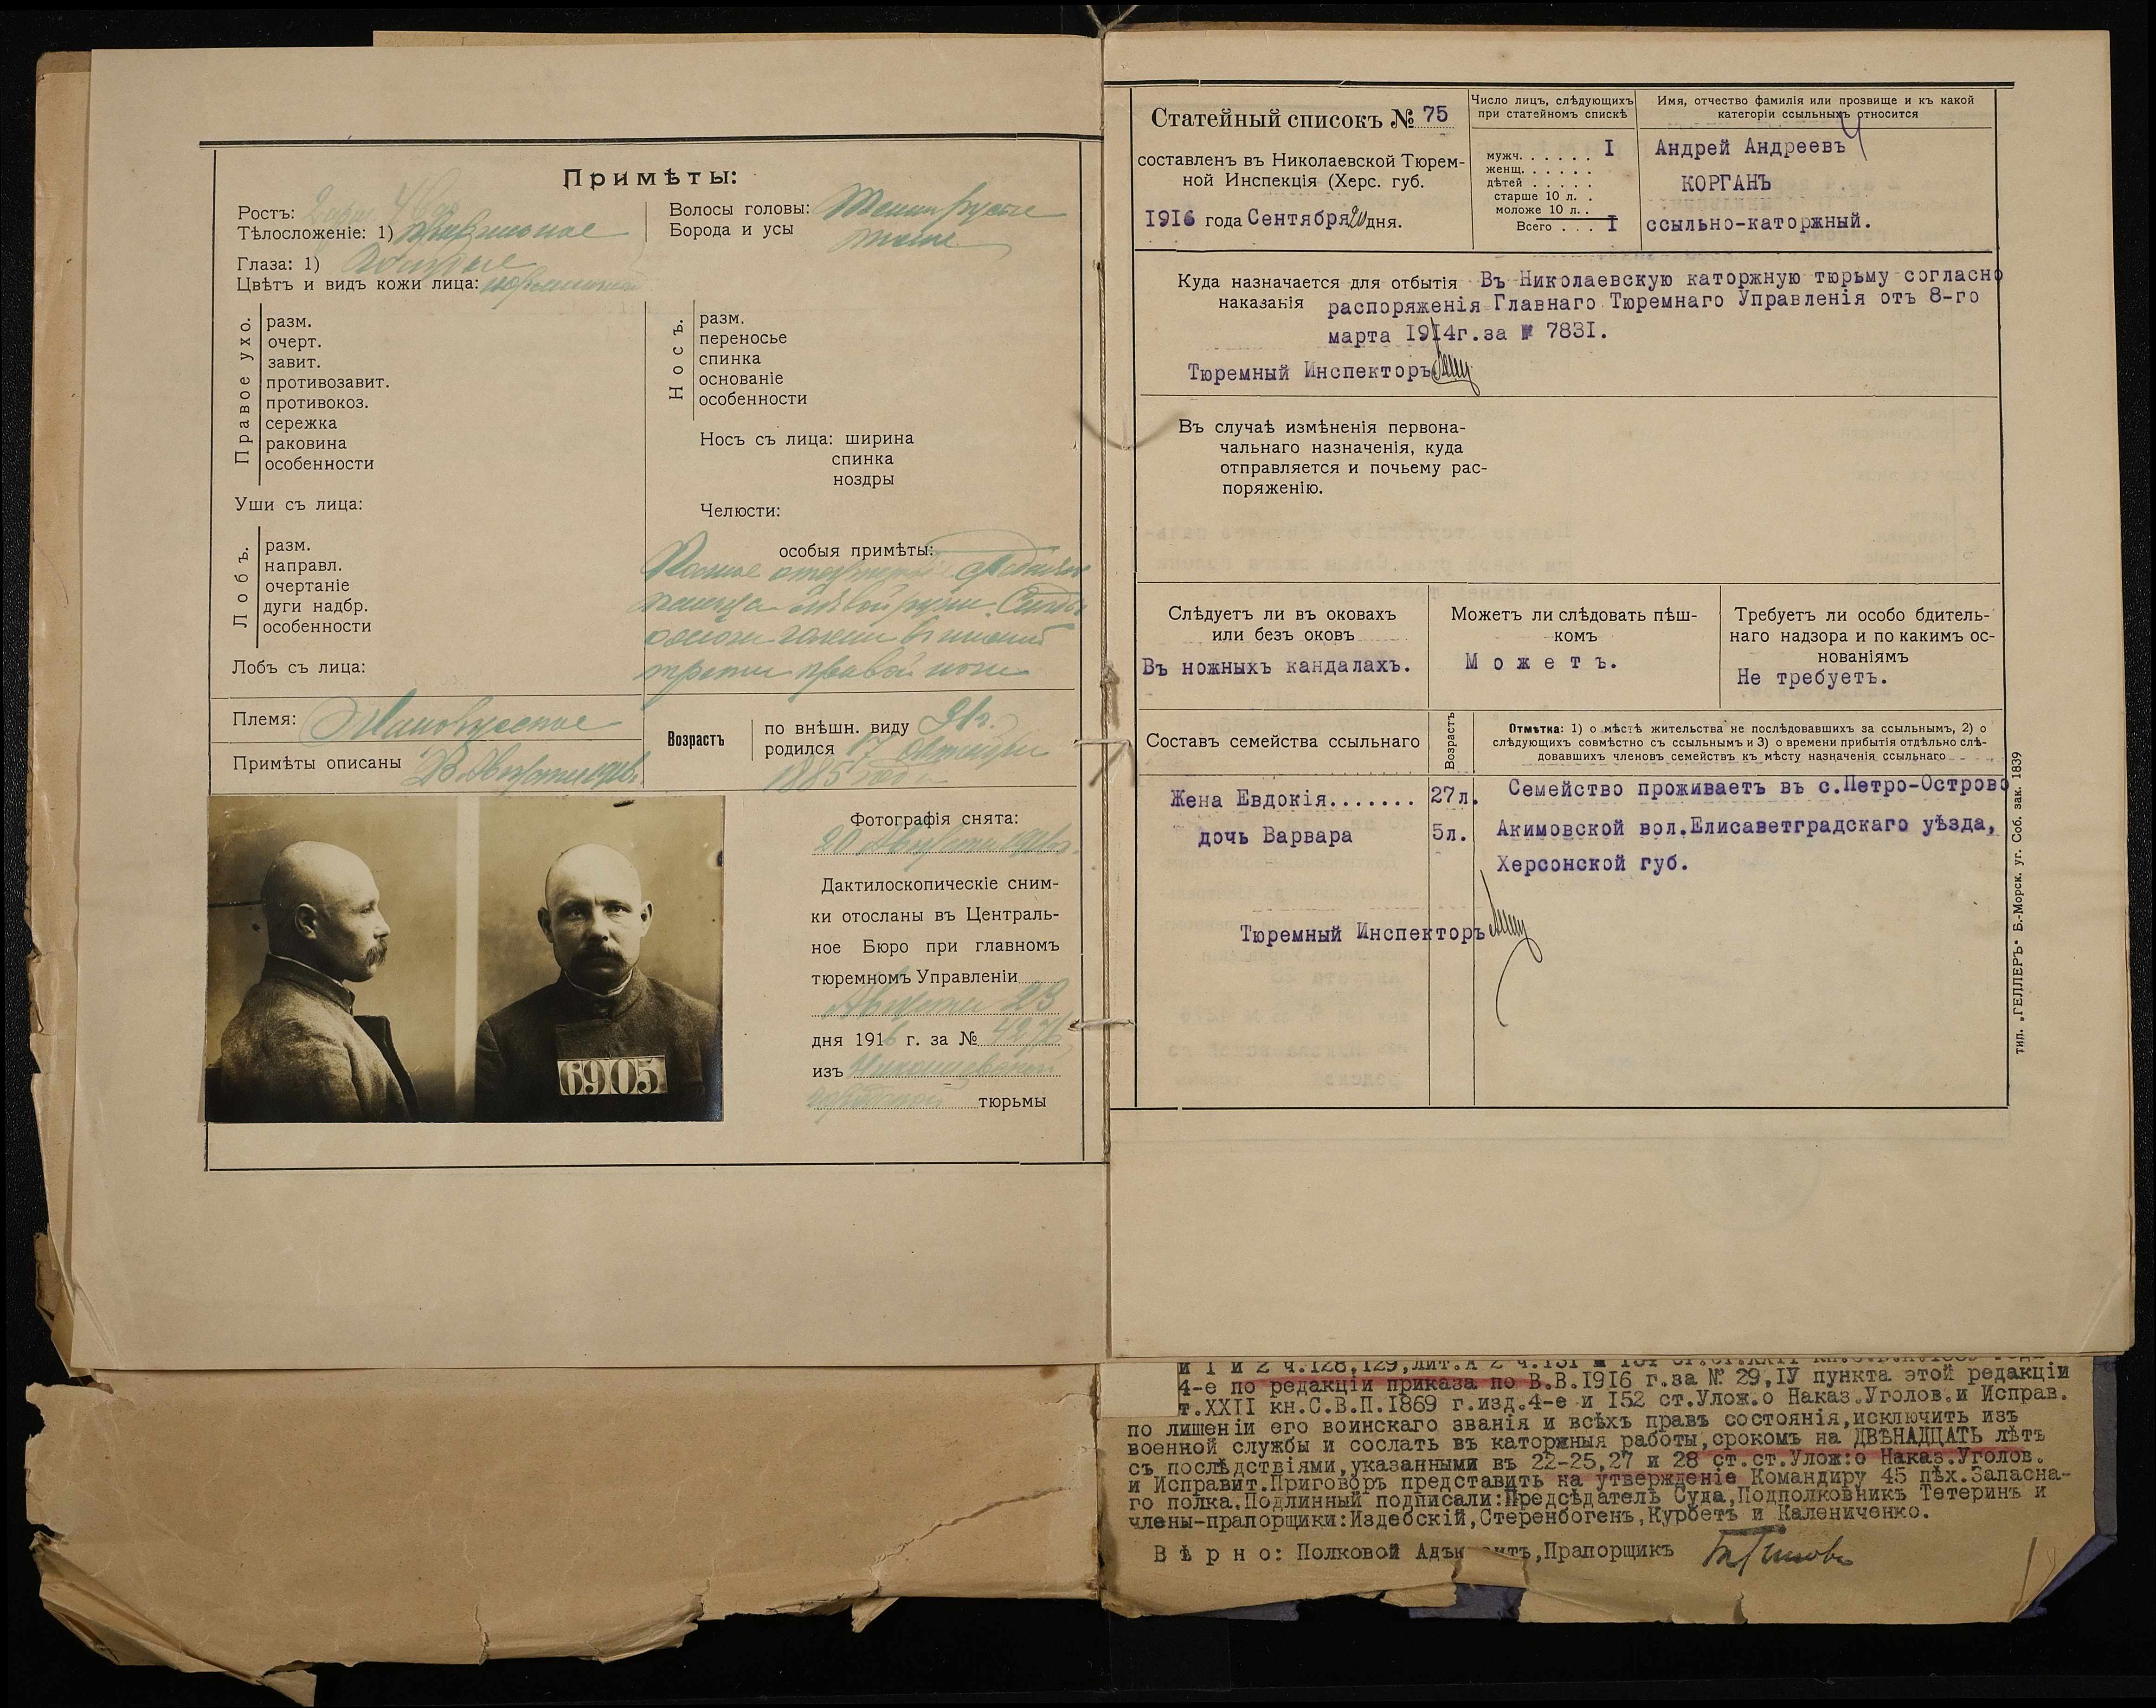 Примѣты:
Ростъ: 2 арш. 4 вер.
Тѣлосложеніе: 1) правильное
Глаза: 1)
Цвѣтъ и видъ кожи лица: нормальный
Волосы головы: Темнорусые
Борода и усы тоже
Правое ухо.
разм.
очерт.
завит.
противозавит.
противокоз.
сережка
раковина
особенности
Уши съ лица:
Лобъ.
разм.
направл.
очертаніе
дуги надбр.
особенности
Лобъ съ лица:
Носъ.
разм.
переносье
спинка
основаніе
особенности
Носъ съ лица: ширина
спинка
ноздры
Челюсти:
особыя примѣты:
Полное отсутствіе средняго
пальца лѣвой руки. Слѣды
ожога голени въ нижней
трети правой ноги
Племя: Малорусское
Примѣты описаны 23 Августа 1916г.
Возрастъ
по внѣшн. виду 31г.
родился 17 октября
1885 года
6905
Фотографія снята:
20 Августа 1916г.
Дактилоскопическіе сним-
ки отосланы въ Централь-
ное Бюро при главномъ
тюремномъ Управленіи
Августа 23
дня 1916 г. за № 4276
изъ Николаевской
тюрьмы
Статейный списокъ № 75
составленъ въ Николаевской Тюрем-
ной Инспекція (Херс. губ.
1916 года Сентября 20 дня.
Число лицъ, слѣдующихъ
при статейномъ спискѣ
мужч. . . . . . . I
женщ. . . . . .
дѣтей . . . . .
старше 10 л. .
моложе 10 л. .
Всего . . . I
Имя, отчество фамилія или прозвище и къ какой
категоріи ссыльныхъ относится
Андрей Андреевъ
КОРГАНЪ
ссыльно-каторжный.
Куда назначается для отбытія Въ Николаевскую каторжную тюрьму согласно
наказанія распоряженія Главнаго Тюремнаго Управленія отъ 8-го
марта 1914г.за № 7831.
Тюремный Инспекторъ
Въ случаѣ измѣненія первона-
чальнаго назначенія, куда
отправляется и почьему рас-
поряженію.
Слѣдуетъ ли въ оковахъ
или безъ оковъ
Въ ножныхъ кандалахъ.
Можетъ ли слѣдовать пѣш-
комъ
Можетъ.
Требуетъ ли особо бдитель-
наго надзора и по какимъ ос-
нованіямъ
Не требуетъ.
Составъ семейства ссыльнаго
Возрастъ
Отмѣтка: 1) о мѣстѣ жительства не послѣдовавшихъ за ссыльнымъ, 2) о
слѣдующихъ совмѣстно съ ссыльнымъ и 3) о времени прибытія отдѣльно слѣ-
довавшихъ членовъ семействъ къ мѣсту назначенія ссыльнаго
Жена Евдокія....... 27л.
дочь Варвара 5л.
Семейство проживаетъ въ с.Петро-Острово
Акимовской вол.Елисаветградскаго уѣзда,
Херсонской губ.
Тюремный Инспекторъ
тип. „ГЕЛЛЕРЪ" Б.-Морск. уг. Соб. зак. 1839
и I и 2 ч.128,129,лит.А 2 ч.131
4-е по редакціи приказа по В.В.1916 г.за № 29,IУ пункта этой редакціи
т.XXII кн.С.В.П.1869 г.изд.4-е и 152 ст.Улож.о Наказ.Уголов.и Исправ.
по лишеніи его воинскаго званія и всѣхъ правъ состоянія,исключить изъ
военной службы и сослать въ каторжныя работы,срокомъ на ДВѢНАДЦАТЬ лѣтъ
съ послѣдствіями,указанными въ 22-25,27 и 28 ст.ст.Улож:о Наказ.Уголов.
и Исправит.Приговоръ представить на утвержденіе Командиру 45 пѣх.Запасна-
го полка.Подлинный подписали:Предсѣдатель Суда,Подполковникъ Тетеринъ и
члены-прапорщики:Издебскій,Стеренбогенъ,Курбетъ и Калениченко.
Вѣрно: Полковой Адъютантъ,Прапорщикъ